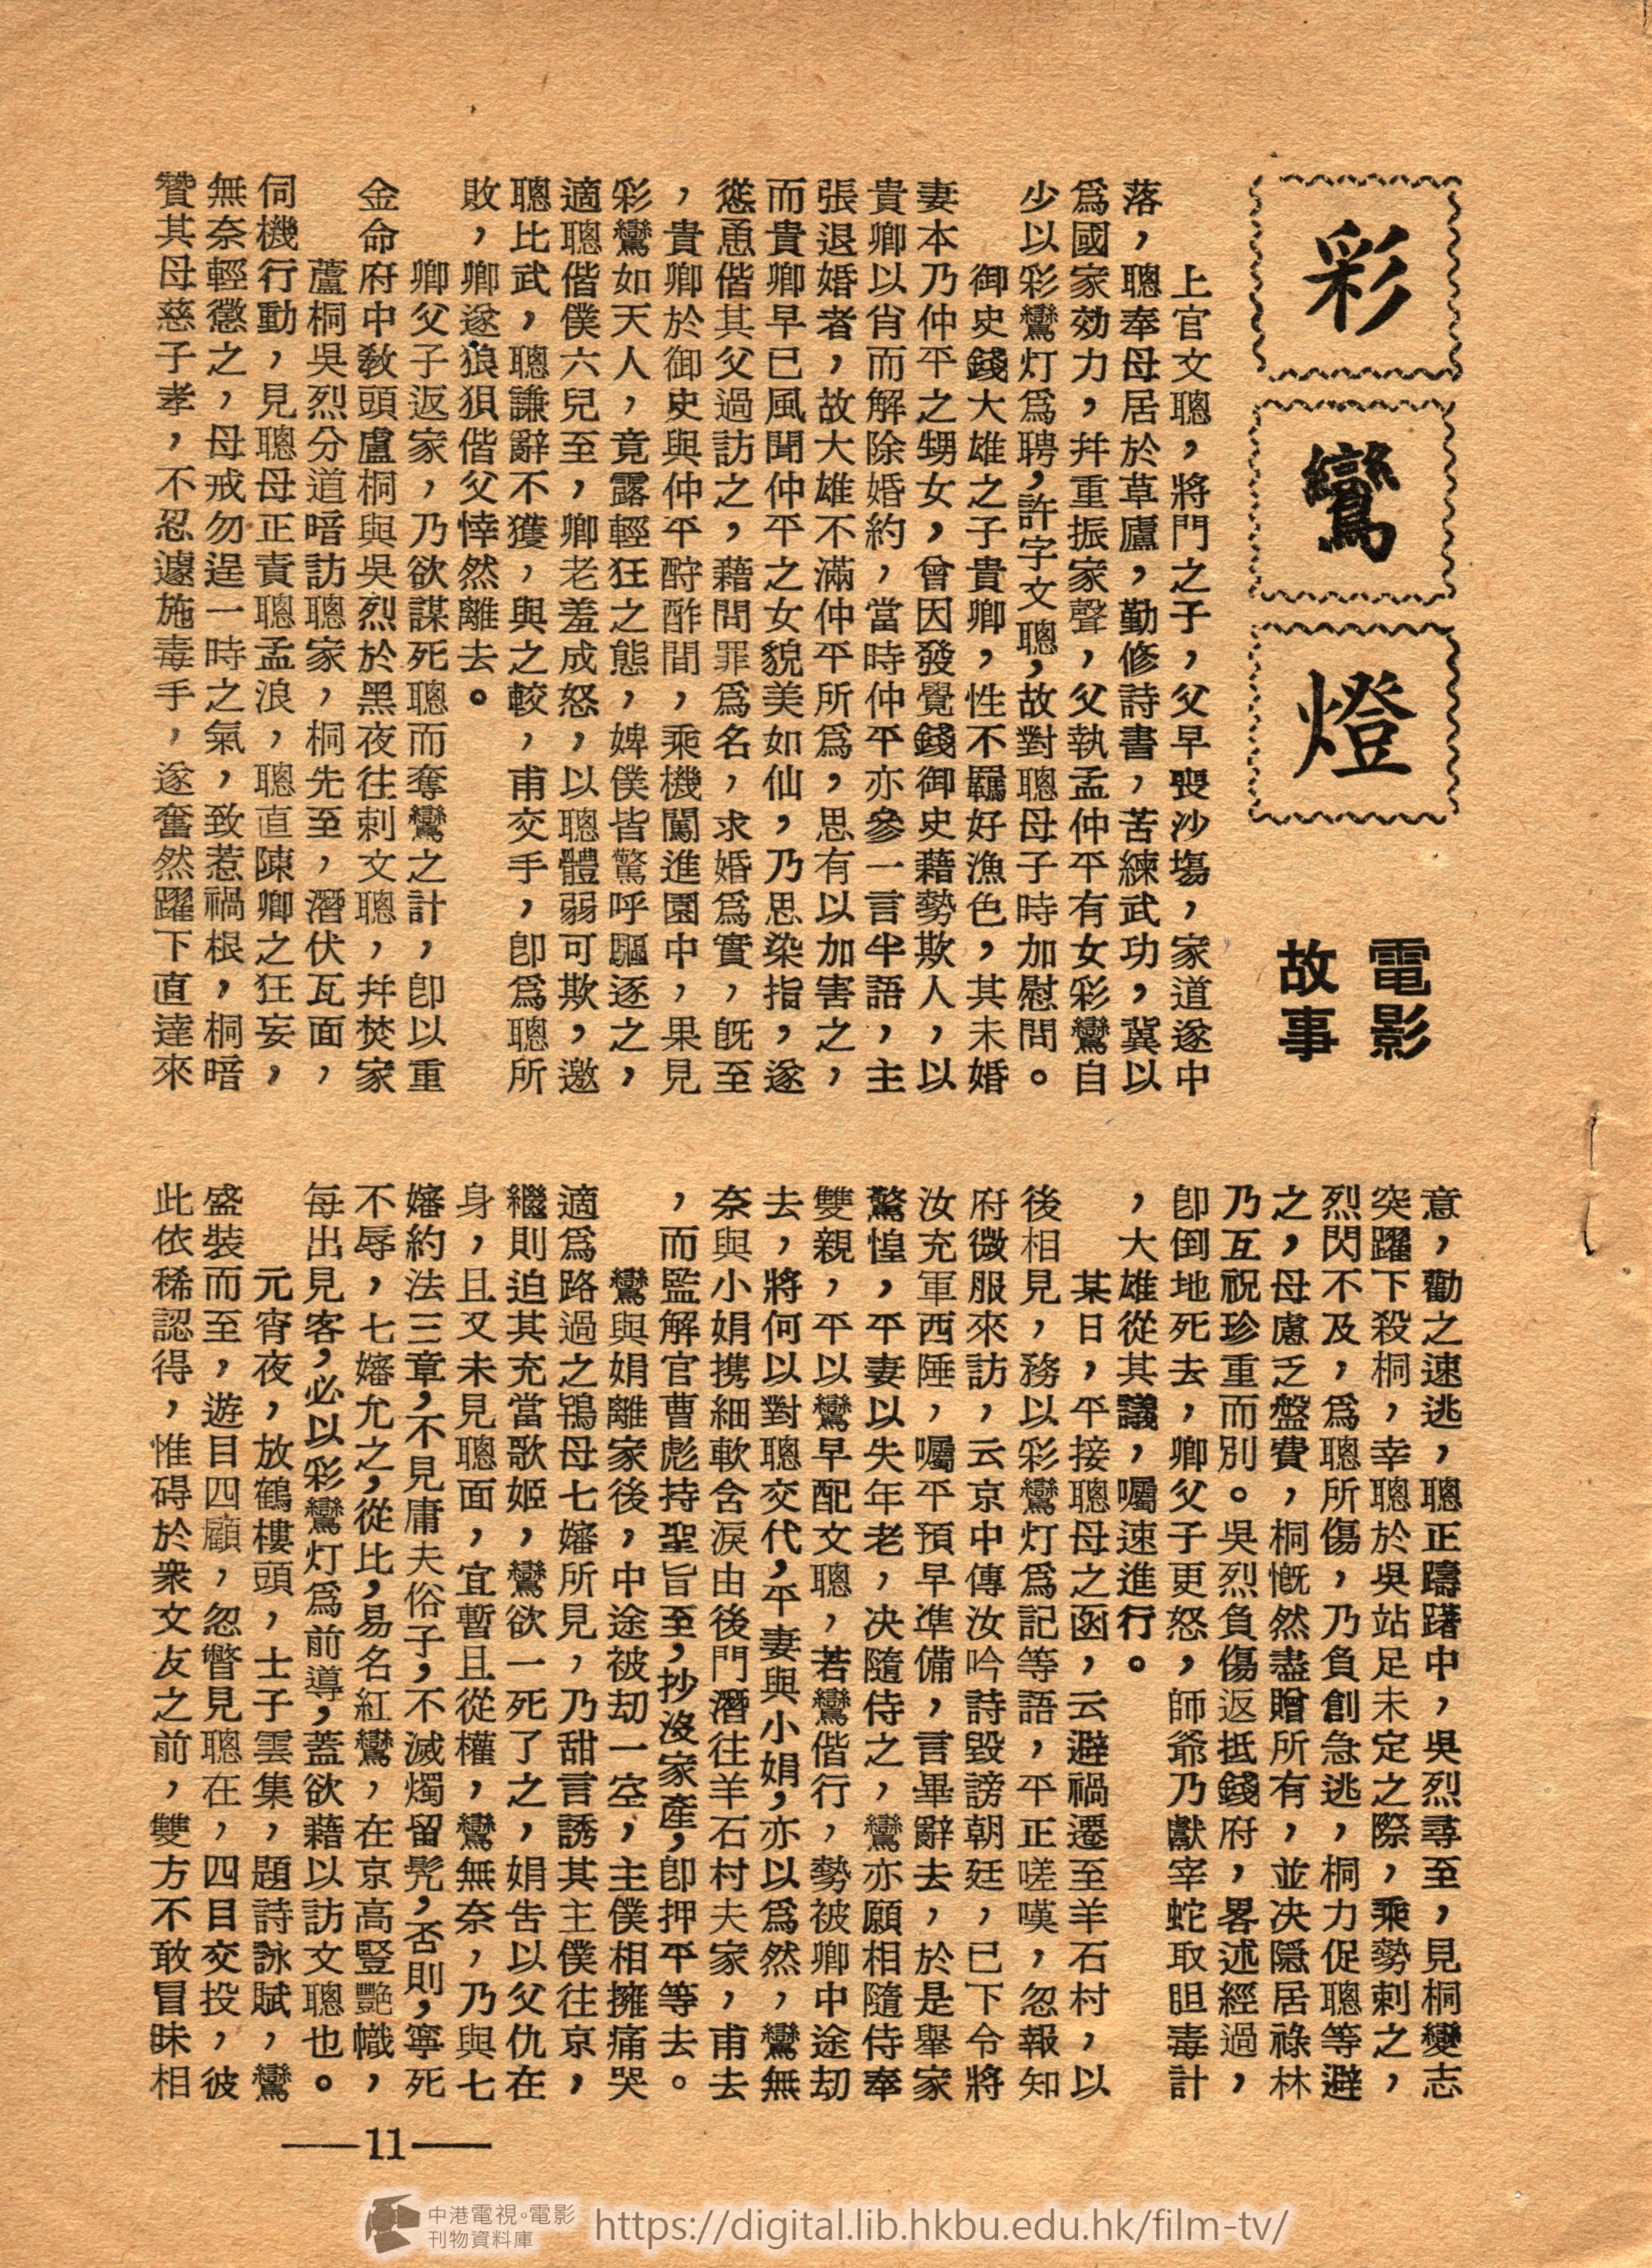 彩鸞燈
電影
故事
上官文聰，將門之子，父早喪沙塲，家道遂中
落，聰奉母居於草廬，勤修詩書，苦練武功，冀以
爲國家効力，幷重振家聲，父執孟仲平有女彩鸞自
少以彩鸞灯爲聘，許字文聰，故對聰母子時加慰問。
御史錢大雄之子貴卿，性不羈好漁色，其未婚
妻本乃仲平之甥女，曾因發覺錢御史藉勢欺人，以
貴卿以肖而解除婚約，當時仲平亦參一言半語，主
張退婚者，故大雄不滿仲平所爲，思有以加害之，
而貴卿早已風聞仲平之女貌美如仙，乃思染指，遂
慫恿偕其父過訪之，藉問罪爲名，求婚爲實，旣至
，貴卿於御史與仲平酧酢間，乘機闖進園中，果見
彩鸞如天人，竟露輕狂之態，婢僕皆驚呼驅逐之，
適聰偕僕六兒至，卿老羞成怒，以聰體弱可欺，邀
聰比武，聰謙辭不獲，與之較，甫交手，卽爲聰所
敗，卿遂狼狽偕父悻然離去。
卿父子返家，乃欲謀死聰而奪鸞之計，卽以重
金命府中敎頭盧桐與吳烈於黑夜往刺文聰，幷焚家
蘆桐吳烈分道暗訪聰家，桐先至，潛伏瓦面，
伺機行動，見聰母正責聰孟浪，聰直陳卿之狂妄，
無奈輕懲之，母戒勿逞一時之氣，致惹禍根，桐暗
贊其母慈子孝，不忍遽施毒手，遂奮然躍下直達來
意，勸之速逃，聰正躊躇中，吳烈尋至，見桐變志
突躍下殺桐，幸聰於吳站足未定之際，乘勢刺之，
烈閃不及，爲聰所傷，乃負創急逃，桐力促聰等避
之，母慮乏盤費，桐慨然盡贈所有，並决隱居祿林
乃互祝珍重而別。吳烈負傷返抵錢府，畧述經過，
卽倒地死去，卿父子更怒，師爺乃獻宰蛇取胆毒計
，大雄從其議，囑速進行。
某日，平接聰母之函，云避禍遷至羊石村，以
後相見，務以彩鸞灯爲記等語，平正嗟嘆，忽報知
府微服來訪，云京中傳汝吟詩毀謗朝廷，已下令將
汝充軍西陲，囑平預早準備，言畢辭去，於是舉家
驚惶，平妻以失年老，决隨侍之，鸞亦願相隨侍奉
雙親，平以鸞早配文聰，若鸞偕行，勢被卿中途刧
去，將何以對聰交代，平妻與小娟，亦以爲然，鸞無
奈與小娟携細軟含淚由後門潛往羊石村夫家，甫去
，而監解官曹彪持聖旨至，抄沒家產，卽押平等去。
鸞與娟離家後，中途被刧一空，主僕相擁痛哭
適爲路過之鴇母七嬸所見，乃甜言誘其主僕往京，
繼則迫其充當歌姬，鸞欲一死了之，娟告以父仇在
身，且又未見聰面，宜暫且從權，鸞無奈，乃與七
嬸約法三章，不見庸夫俗子，不滅燭留髠，否則，寧死
不辱，七嬸允之，從比，易名紅鸞，在京高豎艷幟，
每出見客，必以彩鸞灯爲前導，蓋欲藉以訪文聰也。
元宵夜，放鶴樓頭，士子雲集，題詩詠賦，鸞
盛裝而至，遊目四顧，忽瞥見聰在，四目交投，彼
此依稀認得，惟碍於衆文友之前，雙方不敢冒昧相
——11——
中港電視·電影
刊物資料庫
https://digital.lib.hkbu.edu.hk/film-tv/